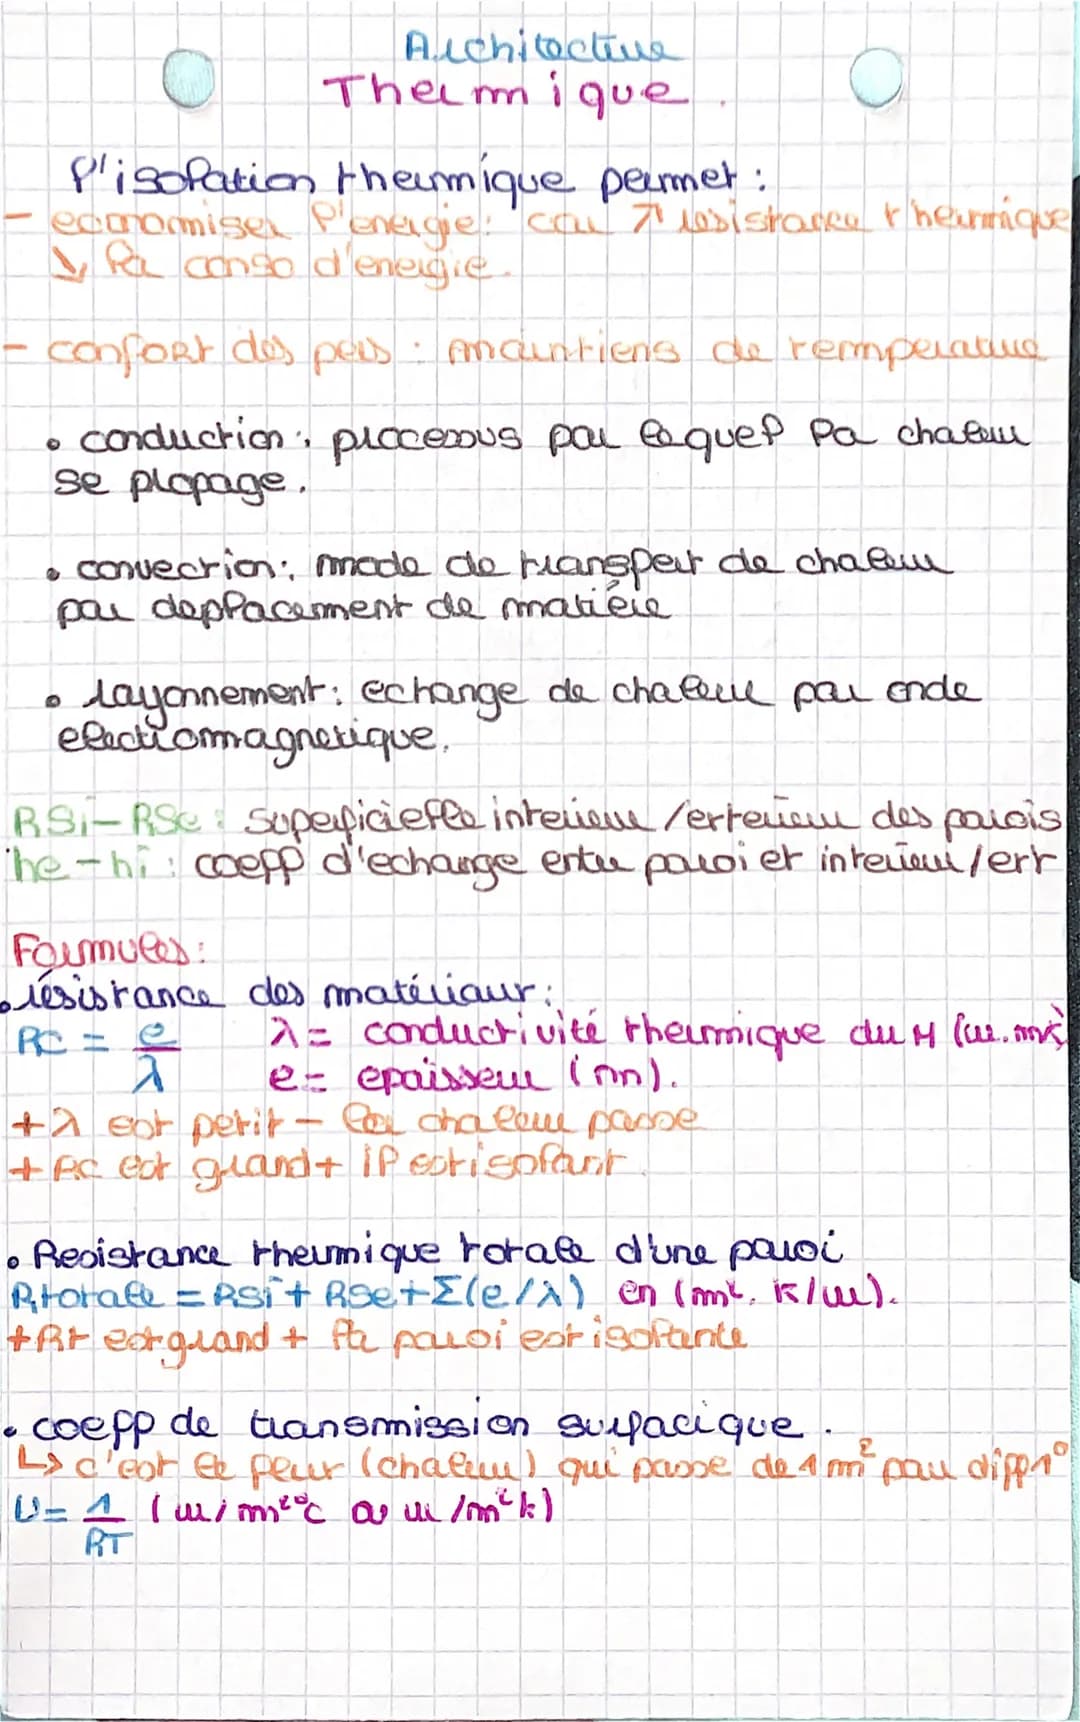 Architecture
Thermique.
l'isolation thermique permet :
- economiser l'energie: car ↗ resistance thermique
↘ la conso d'energie.
- confort des pers : maintiens de temperature
• conduction : processus par lequel la chaleur
se propage.
• convection : mode de transport de chaleur
par deplacement de matière
• rayonnement : echange de chaleur par onde
electromagnetique.
RSi - RSe : superficielle interieur / exterieur des parois
he - hi : coeff d'echange entre paroi et interieur / ext
Formules :
• résistance des matériaux :
RC = e/λ λ = conductivité thermique du M (w.mk)
e = epaisseur (m).
+ λ est petit - la chaleur passe
+ RC est grand + il est isolant.
• Resistance thermique totale d'une paroi
R,totale = Rsi + Rse + Σ(e/λ) en (m². K/w).
+ Rt est grand + la paroi est isolante
• coeff de transmission surfacique.
↳ c'est le flux (chaleur) qui passe de 1 m² par diff 1°
U = 1/RT (w/m²°c ou w/m²k)